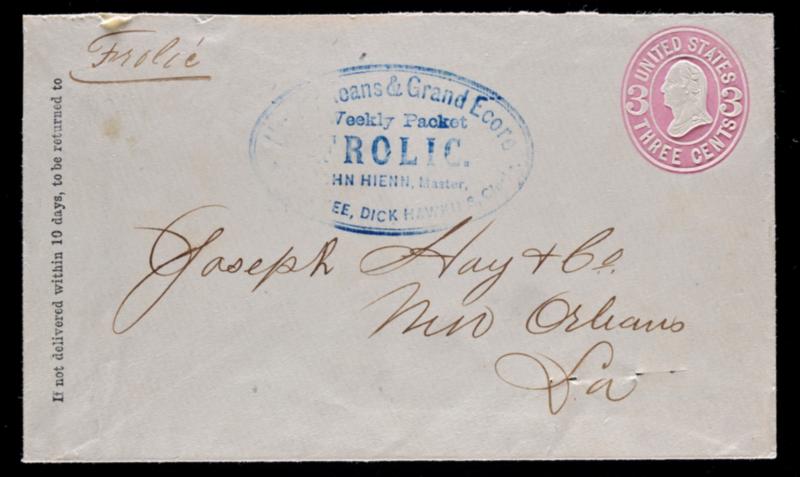 Frolic
UNITED STATES
3 3
THREE CENTS
& Grand Ecore
Weekly Packet
FROLIC.
HN HIENN, Master,
EE, DICK HAWKINS, Clerks
Joseph Hoy & Co.
New Orleans
La
If not delivered within 10 days, to be returned to